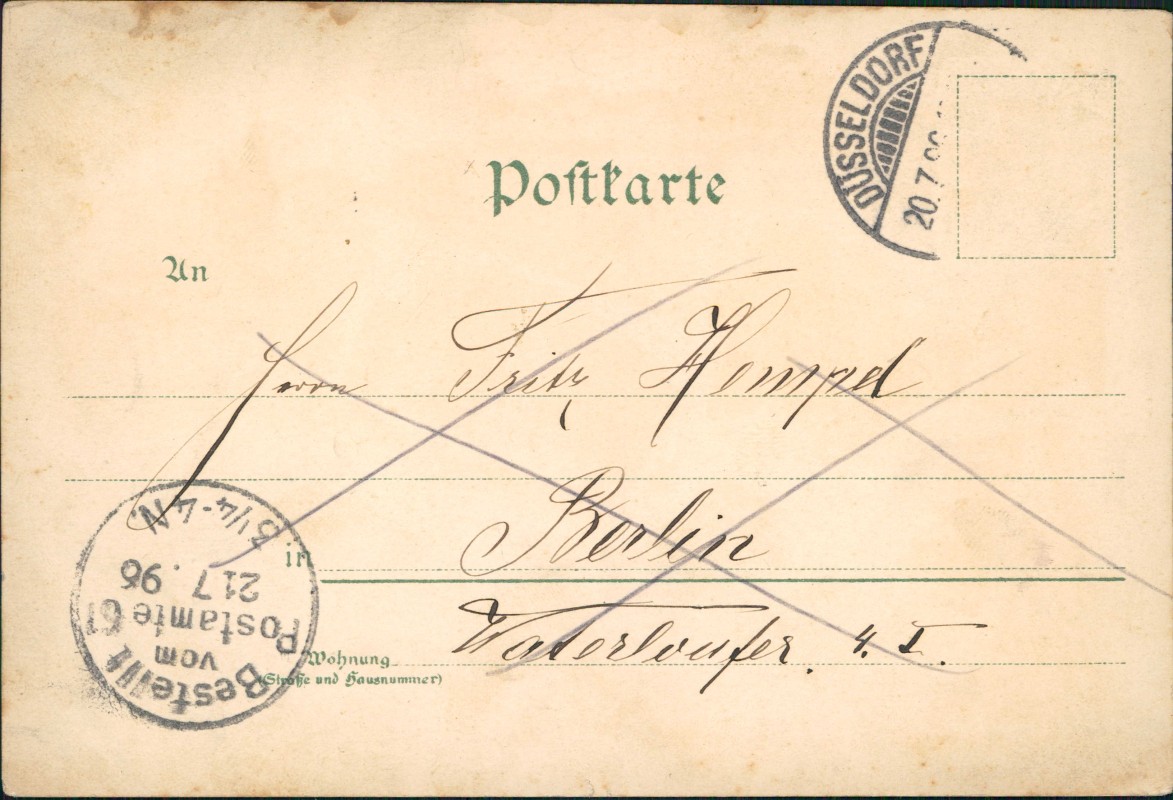 DÜSSELDORF
20.7.
Poſtkarte
An
Herrn Fritz Hempel
in Berlin
Waterloufer. 4. I.
Wohnung
(Straße und Hausnummer)
Bestellt
vom
Postamte 61
21.7.96
3 1/4-4 N.